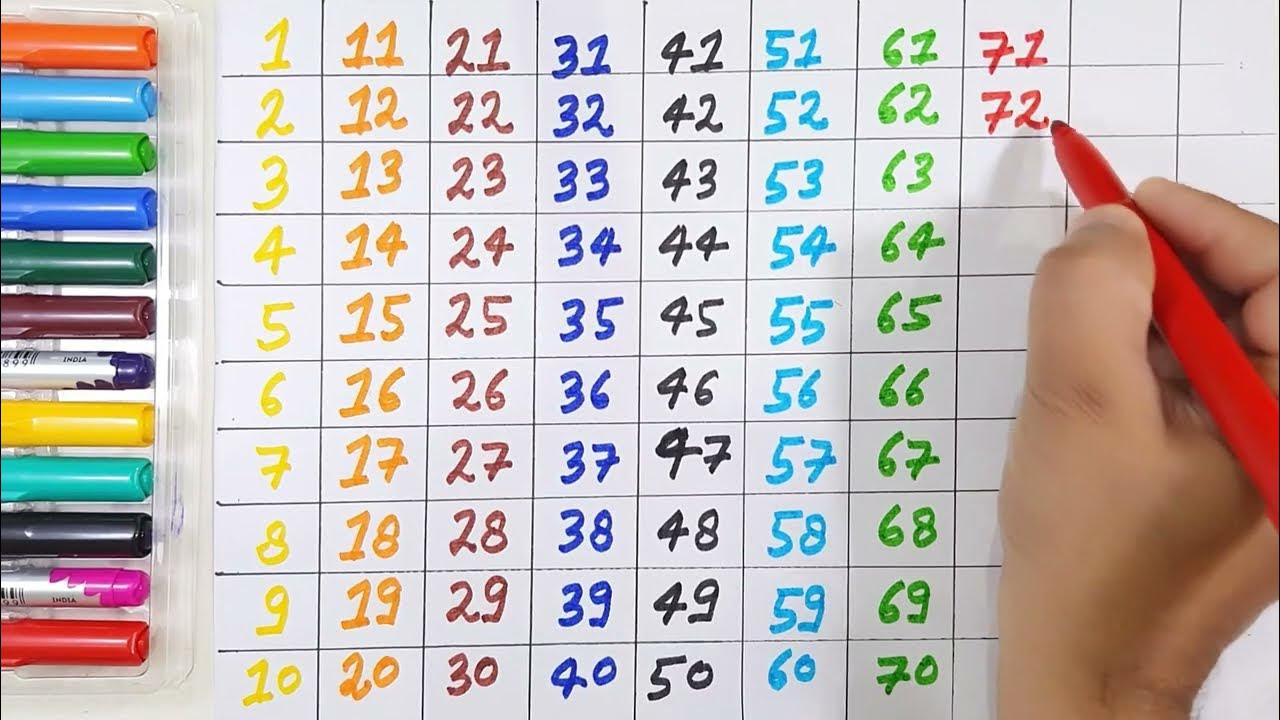 1 11 21 31 41 51 61 71
2 12 22 32 42 52 62 72
3 13 23 33 43 53 63
4 14 24 34 44 54 64
5 15 25 35 45 55 65
6 16 26 36 46 56 66
INDIA
7 17 27 37 47 57 67
8 18 28 38 48 58 68
9 19 29 39 49 59 69
INDIA
10 20 30 40 50 60 70